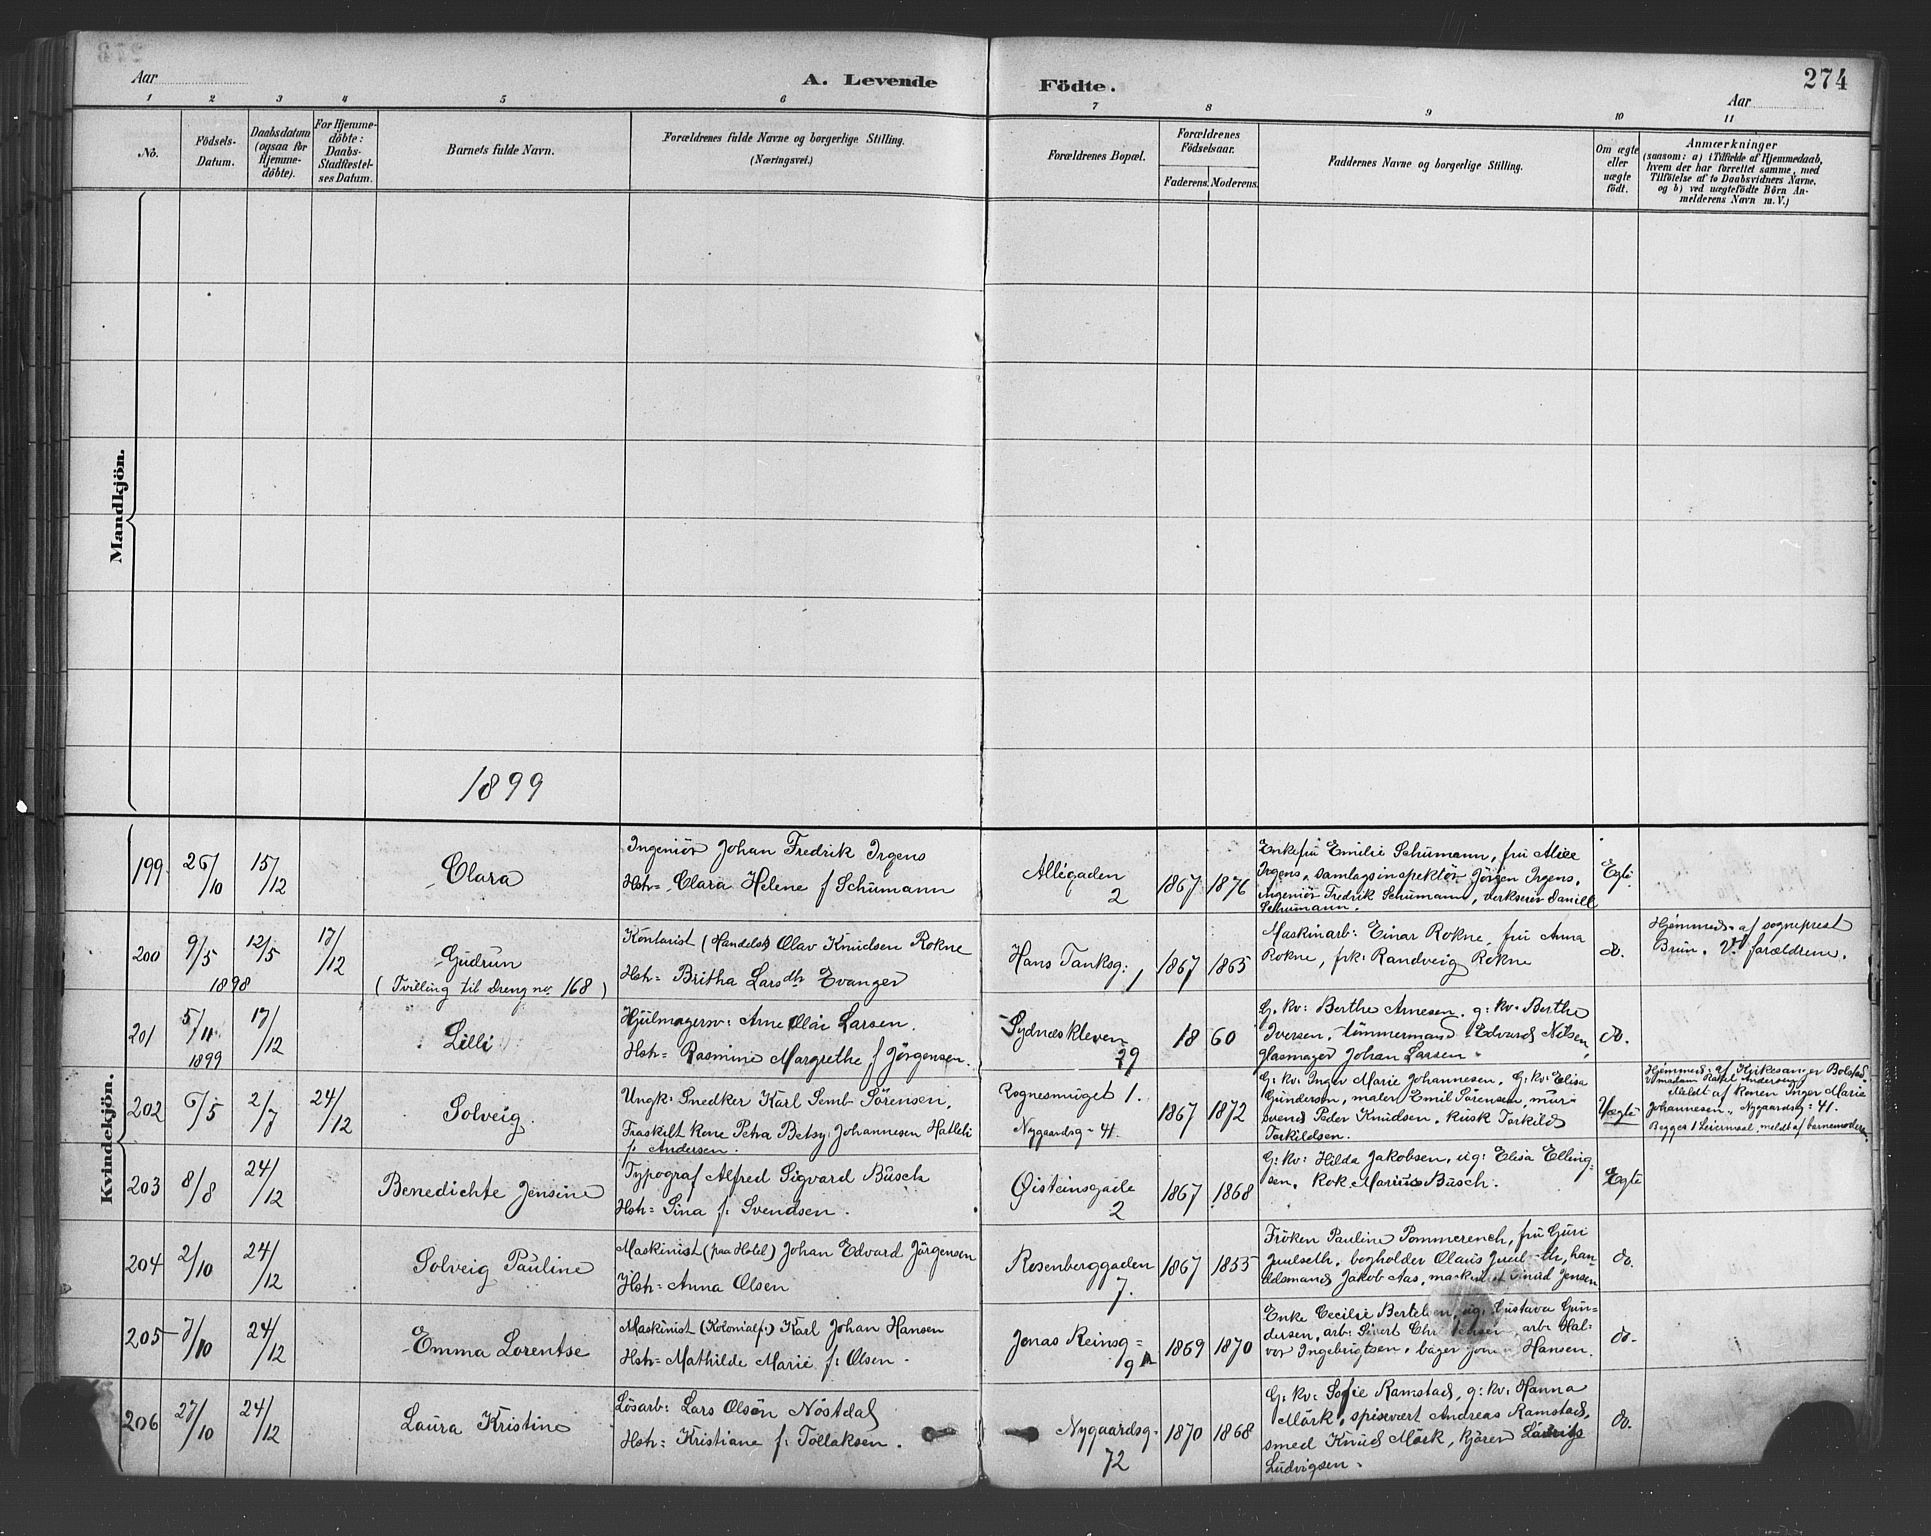 274
Aar
A. Levende Födte.
Aar
1 2 3 4 5 6 7 8 9 10 11
No.
Födsels-
Datum.
Daabsdatum
(ogsaa for
Hjemme-
döbte).
For Hjemme-
döbte:
Daabs-
Stadfæstel-
ses Datum.
Barnets fulde Navn.
Forældrenes fulde Navne og borgerlige Stilling.
(Næringsvei.)
Forældrenes Bopæl.
Forældrenes
Födselsaar.
Faderens. Moderens.
Faddernes Navne og borgerlige Stilling.
Om ægte
eller
uægte
födt.
Anmærkninger
(saasom: a) i Tilfælde af Hjemmedaab,
hvem der har forrettet samme, med
Tilföielse af to Daabsvidners Navne,
og b) ved uægtefödte Börn An-
melderens Navn m. V.)
Mandkjön.
1899
Kvindekjön.
199 26/10 15/12
Clara
Ingeniör Johan Fredrik Irgens
Hstr= Clara Helene f Schümann
Allégaden
2
1867 1876
Enkefrü Emilie Schümann, frü Alice
Irgens, samlagsinspektör Jörgen Irgens,
ingeniör Fredrik Schümann, verkseier Daniel
Schümann.
Egte
200 9/5 12/5 17/12
1898
Güdrün
(Tvilling til Dreng no. 168)
Kontorist (Handels) Olav Knüdsen Rokne
Hstr= Britha Larsdtr Evanger
Hans Tanksg: 1
1867 1865
Maskinarb: Einar Rokne, frü Anna
Rokne, frk: Randveig Rokne
do.
Hjemmed= af sogneprest
Brün. V. forældrene.
201 5/11 17/12
1899
Lilli
Hjülmagersv: Arne Olai Larsen.
Hstr= Rasmine Margrethe f Jörgensen.
Sydneskleven
29
18 60
G: kv: Berthe Arnesen. g: kv: Berthe
Iversen, tömmermand Edvard Nilsen,
glasmager Johan Larsen.
do.
202 6/5 2/7 24/12
Solveig.
Ungk: Snedker Karl Semb Sörensen,
Fraskilt kone Petra Betsy Johannesen Hatleli
f. Andersen.
Rognesmüget 1.
Nygaardsg= 41.
1867 1872
G: kv: Inger Marie Johannesen, G: kv: Elisa
Gündersen, maler Emil Sörensen, mür=
svend Peder Knüdsen, küsk Torkild
Torkildsen.
Uægte
Hjemmed= af Kirkesanger Bolstad.
Vomstam Rakel Andersen
Meldt af konen Inger Marie
Johannesen, Nygaardsg= 41.
Begges 1 Leiermaal, meldt af barnemoderen.
203 8/8 24/12
Benedichte Jensine
Typograf Alfred Sigvard Büsch
Hstr= Sina f: Svendsen.
Øisteinsgade
2
1867 1868
G: kv: Hilda Jakobsen, üg: Elisa Elling=
sen, kok Marius Büsch.
Egte
204 2/10 24/12
Solveig Pauline
Maskinist (paa Hotel) Johan Edvard Jörgensen
Hstr= Anna Olsen
Rosenberggaden
7.
1867 1855
Fröken Pauline Pommerench, frü Güri
Juulseth, bogholder Olaus Juulseth, han=
delsmand Jakob Aas, maskinist Knud Jensen
do.
205 7/10 24/12
Emma Lorentse
Maskinist (Kolonialf:) Karl Johan Hansen
Hstr= Mathilde Marie f: Olsen.
Jonas Reinsg=
9 A
1869 1870
Enke Cecilie Bertelsen, üg: Gustava Gün=
dersen, arb: Sivert arb: Hal=
vor Ingebrigtsen, bager Hansen.
do.
206 27/10 24/12
Laura Kristine
Lösarb: Lars Olsen Nöstdal
Hstr= Kristiane f: Tollaksen.
Nygaardsg.
72
1870 1868
G: kv: Sofie Ramstad, g: kv: Hanna
Mörk, spisevært Andreas Ramstad,
smed Knüd Mörk, kjörer Laürits
Lüdvigsen.
do.